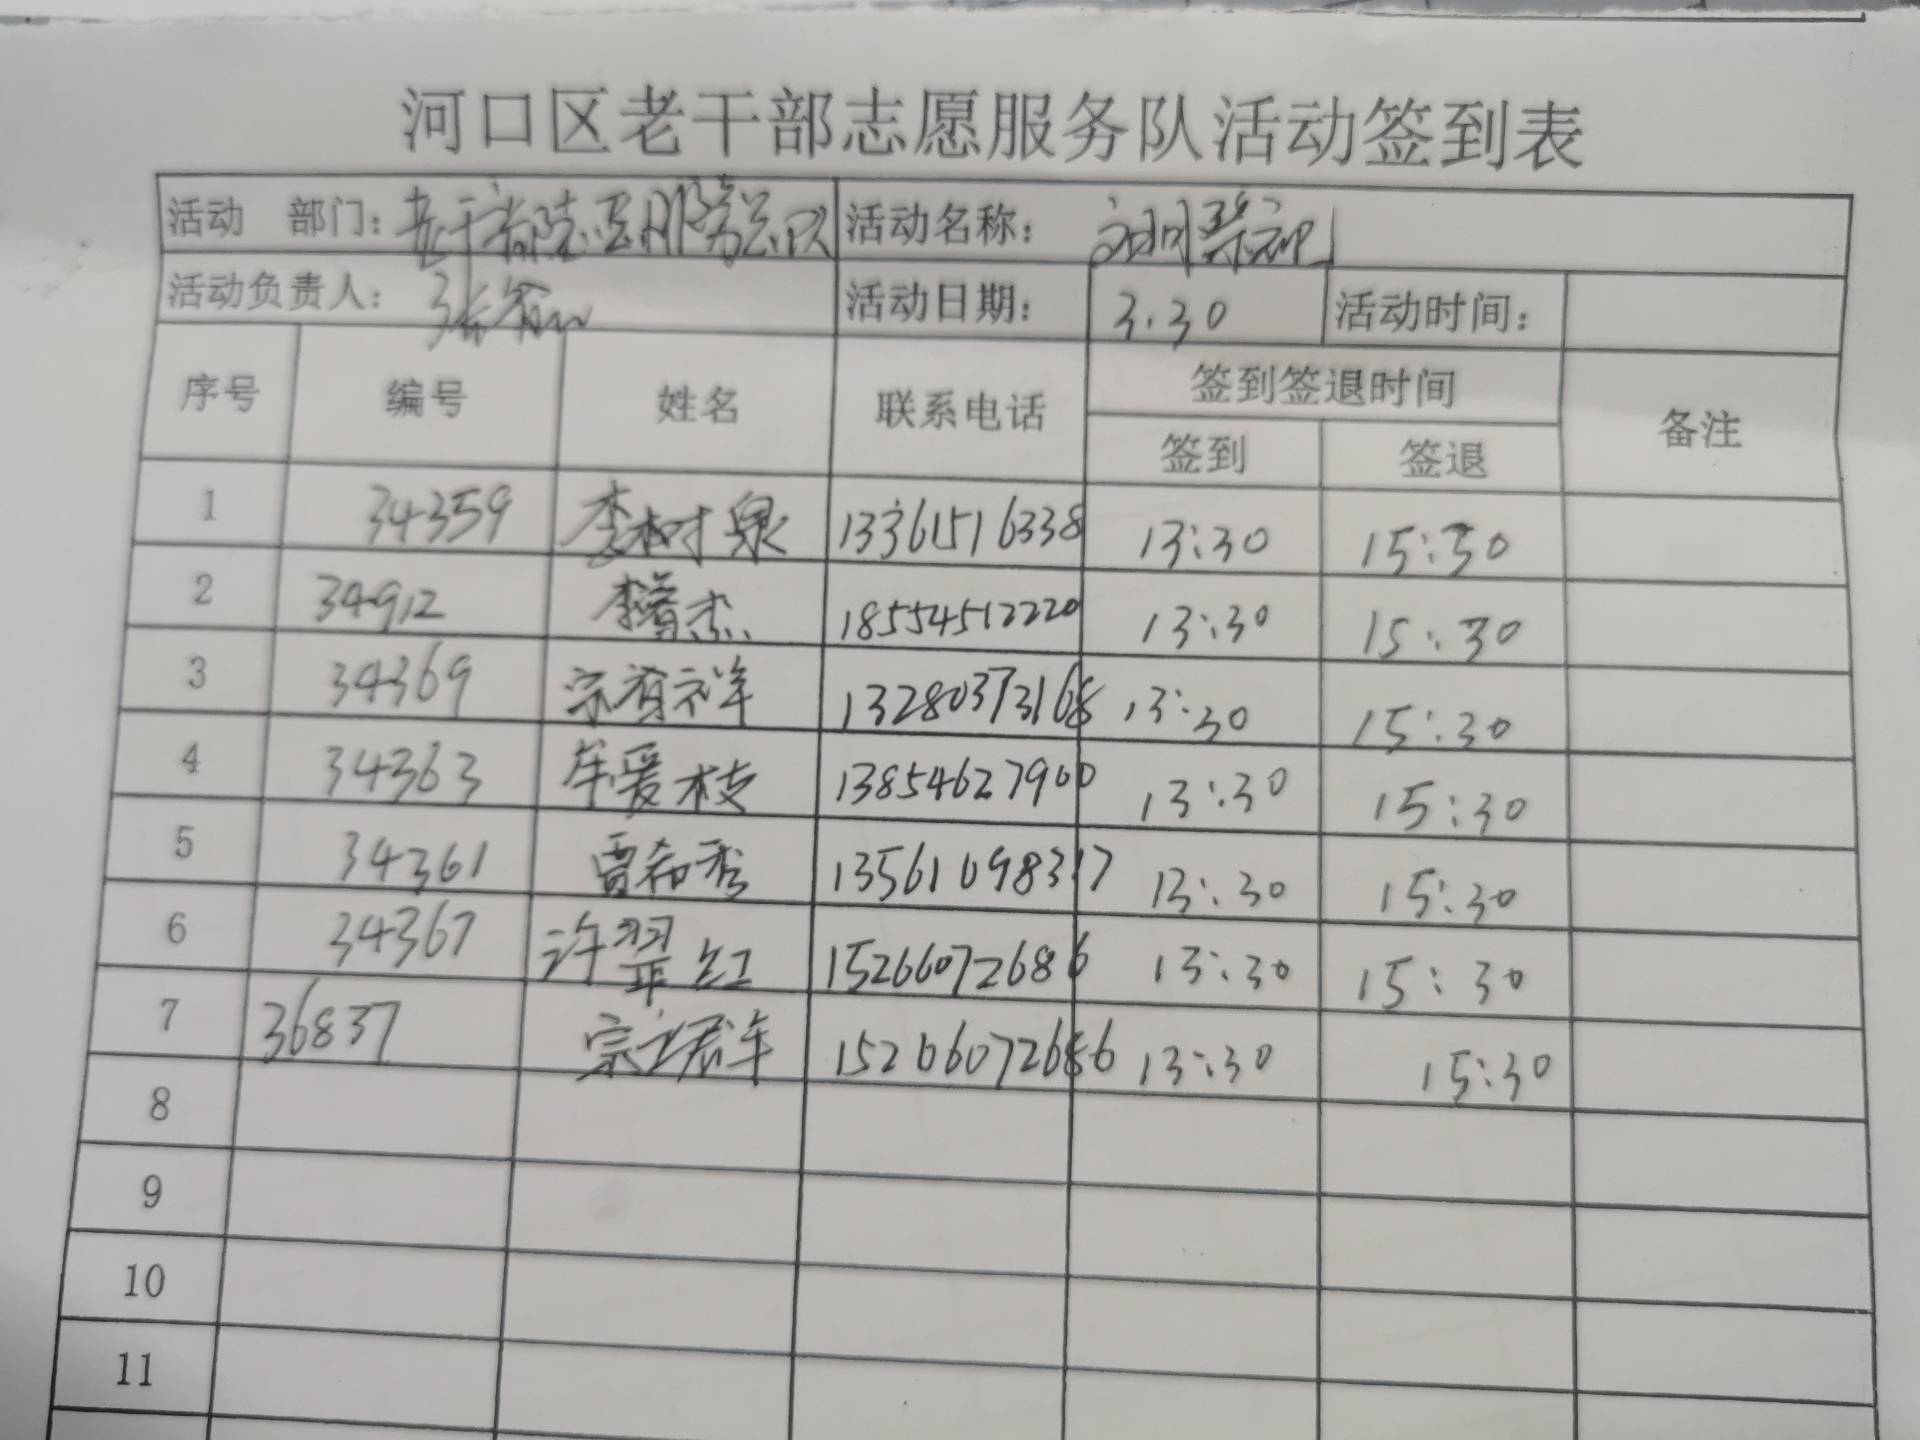 河口区老干部志愿服务队活动签到表
活动 部门：老干部志愿服务总队 活动名称：文明祭祀
活动负责人： 活动日期： 3.30 活动时间：
序号 编号 姓名 联系电话 签到签退时间 备注
签到 签退
1 34359 李树泉 13361516338 13:30 15:30
2 34912 杰 18554512220 13:30 15:30
3 34369 宗有祥 13280373168 13:30 15:30
4 34363 牟爱枝 13854627900 13:30 15:30
5 34361 贾希秀 13561098317 13:30 15:30
6 34367 许翠红 15266072686 13:30 15:30
7 36837 宗立群 15266072686 13:30 15:30
8
9
10
11